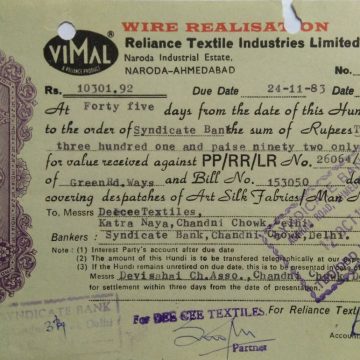 WIRE REALISATION
VIMAL ®
A RELIANCE PRODUCT
Reliance Textile Industries Limited
Naroda Industrial Estate,
NARODA-AHMEDABAD No.
Rs. 10301.92 Due Date 24-11-83 Da
At Forty five days from the date of this Hun
to the order of Syndicate Bank the sum of Rupees T
three hundred one and paise ninety two only
for value received against PP/RR/LR No. 26064
of Green Rd. Ways and Bill No. 153050 da
covering despatches of Art Silk Fabrics/Man M
To Messrs DeeceeTextiles,
Katra Naya, Chandni Chowk, Delhi.
Bankers : Syndicate Bank, Chandni Chowk, Delhi.
Note : (1) Interest Party's account after due date
(2) The amount of this Hundi to be transferred telegraphically at our
(3) If the Hundi remains unretired on due date, this is to be presented
Messrs Devisahai Ch. Asso., Chandni Chowk
for settlement within three days from the date of presentation.
SYNDICATE BANK
Delhi
For DEE CEE TEXTILES
Partner
For Reliance Textile
Accounts